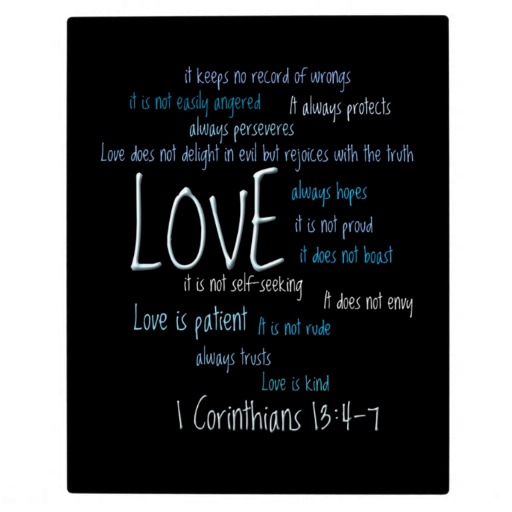 it keeps no record of wrongs
it is not easily angered
It always protects
always perseveres
Love does not delight in evil but rejoices with the truth
LOVE
always hopes
it is not proud
it does not boast
it is not self-seeking
It does not envy
Love is patient
It is not rude
always trusts
Love is kind
1 Corinthians 13:4-7